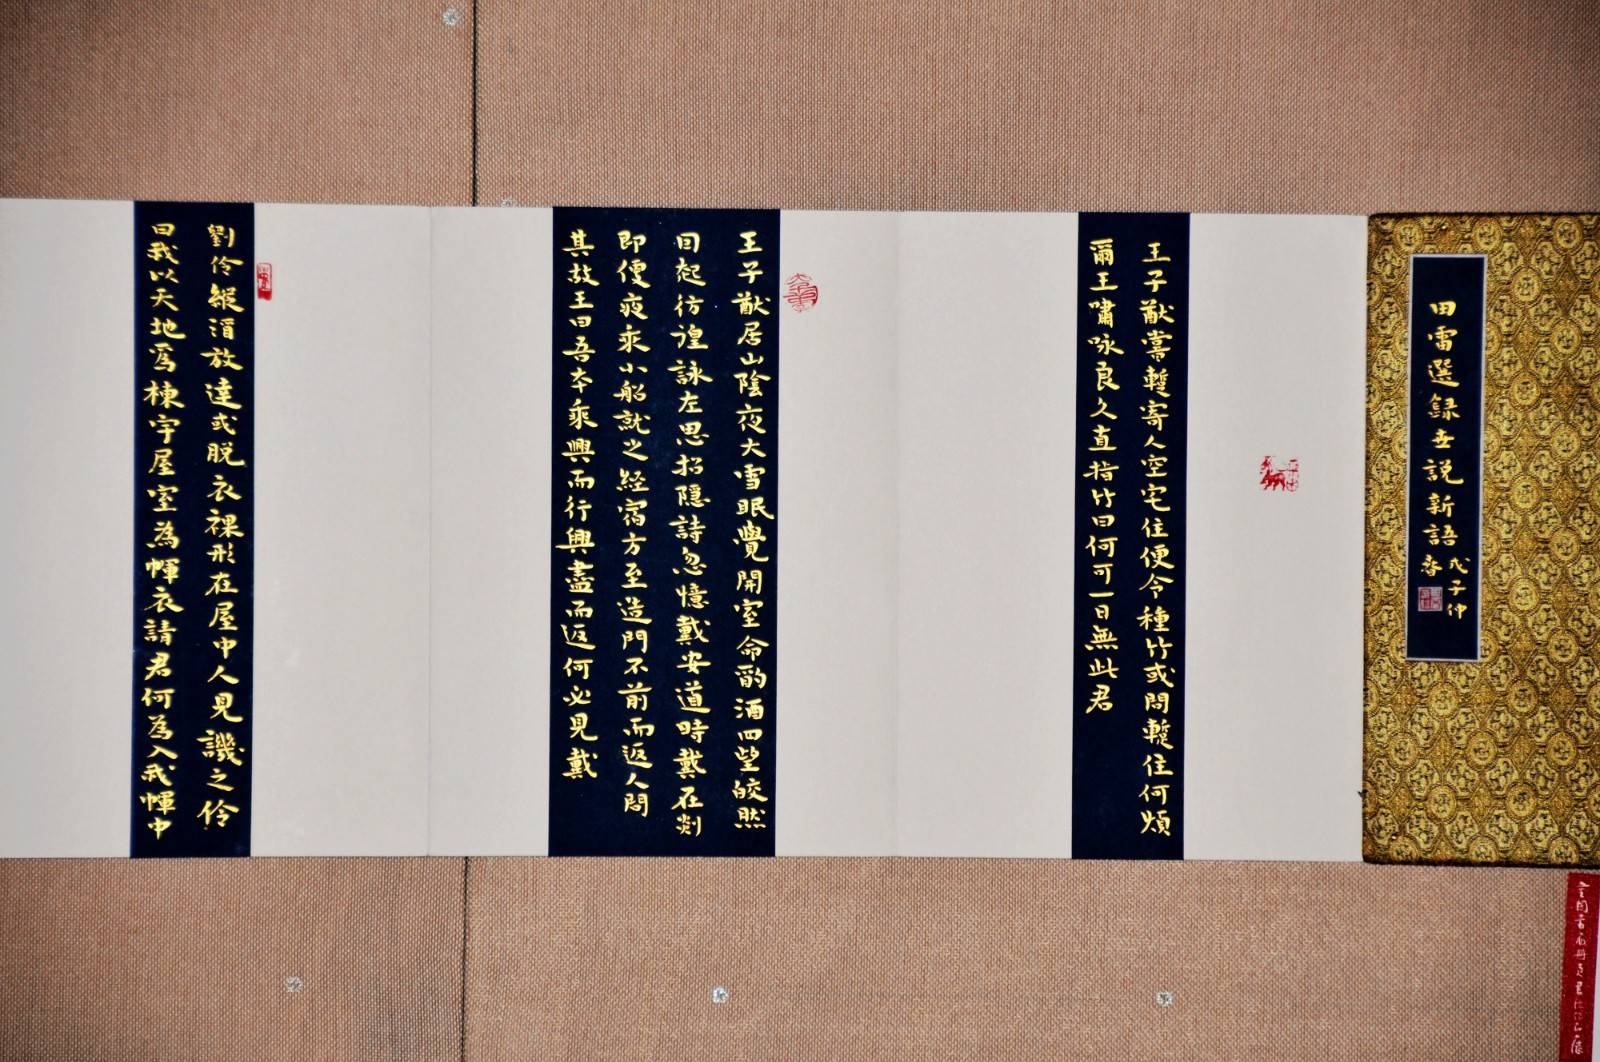 田雷選録世說新語
戊子仲春
王子猷嘗暫寄人空宅住便令種竹或問暫住何煩
爾王嘯咏良久直指竹曰何可一日無此君
王子猷居山陰夜大雪眠覺開室命酌酒四望皎然
因起彷徨詠左思招隱詩忽憶戴安道時戴在剡
即便夜乘小船就之經宿方至造門不前而返人問
其故王曰吾本乘興而行興盡而返何必見戴
劉伶縱酒放達或脱衣裸形在屋中人見譏之伶
曰我以天地爲棟宇屋室為㡓衣請君何為入我㡓中